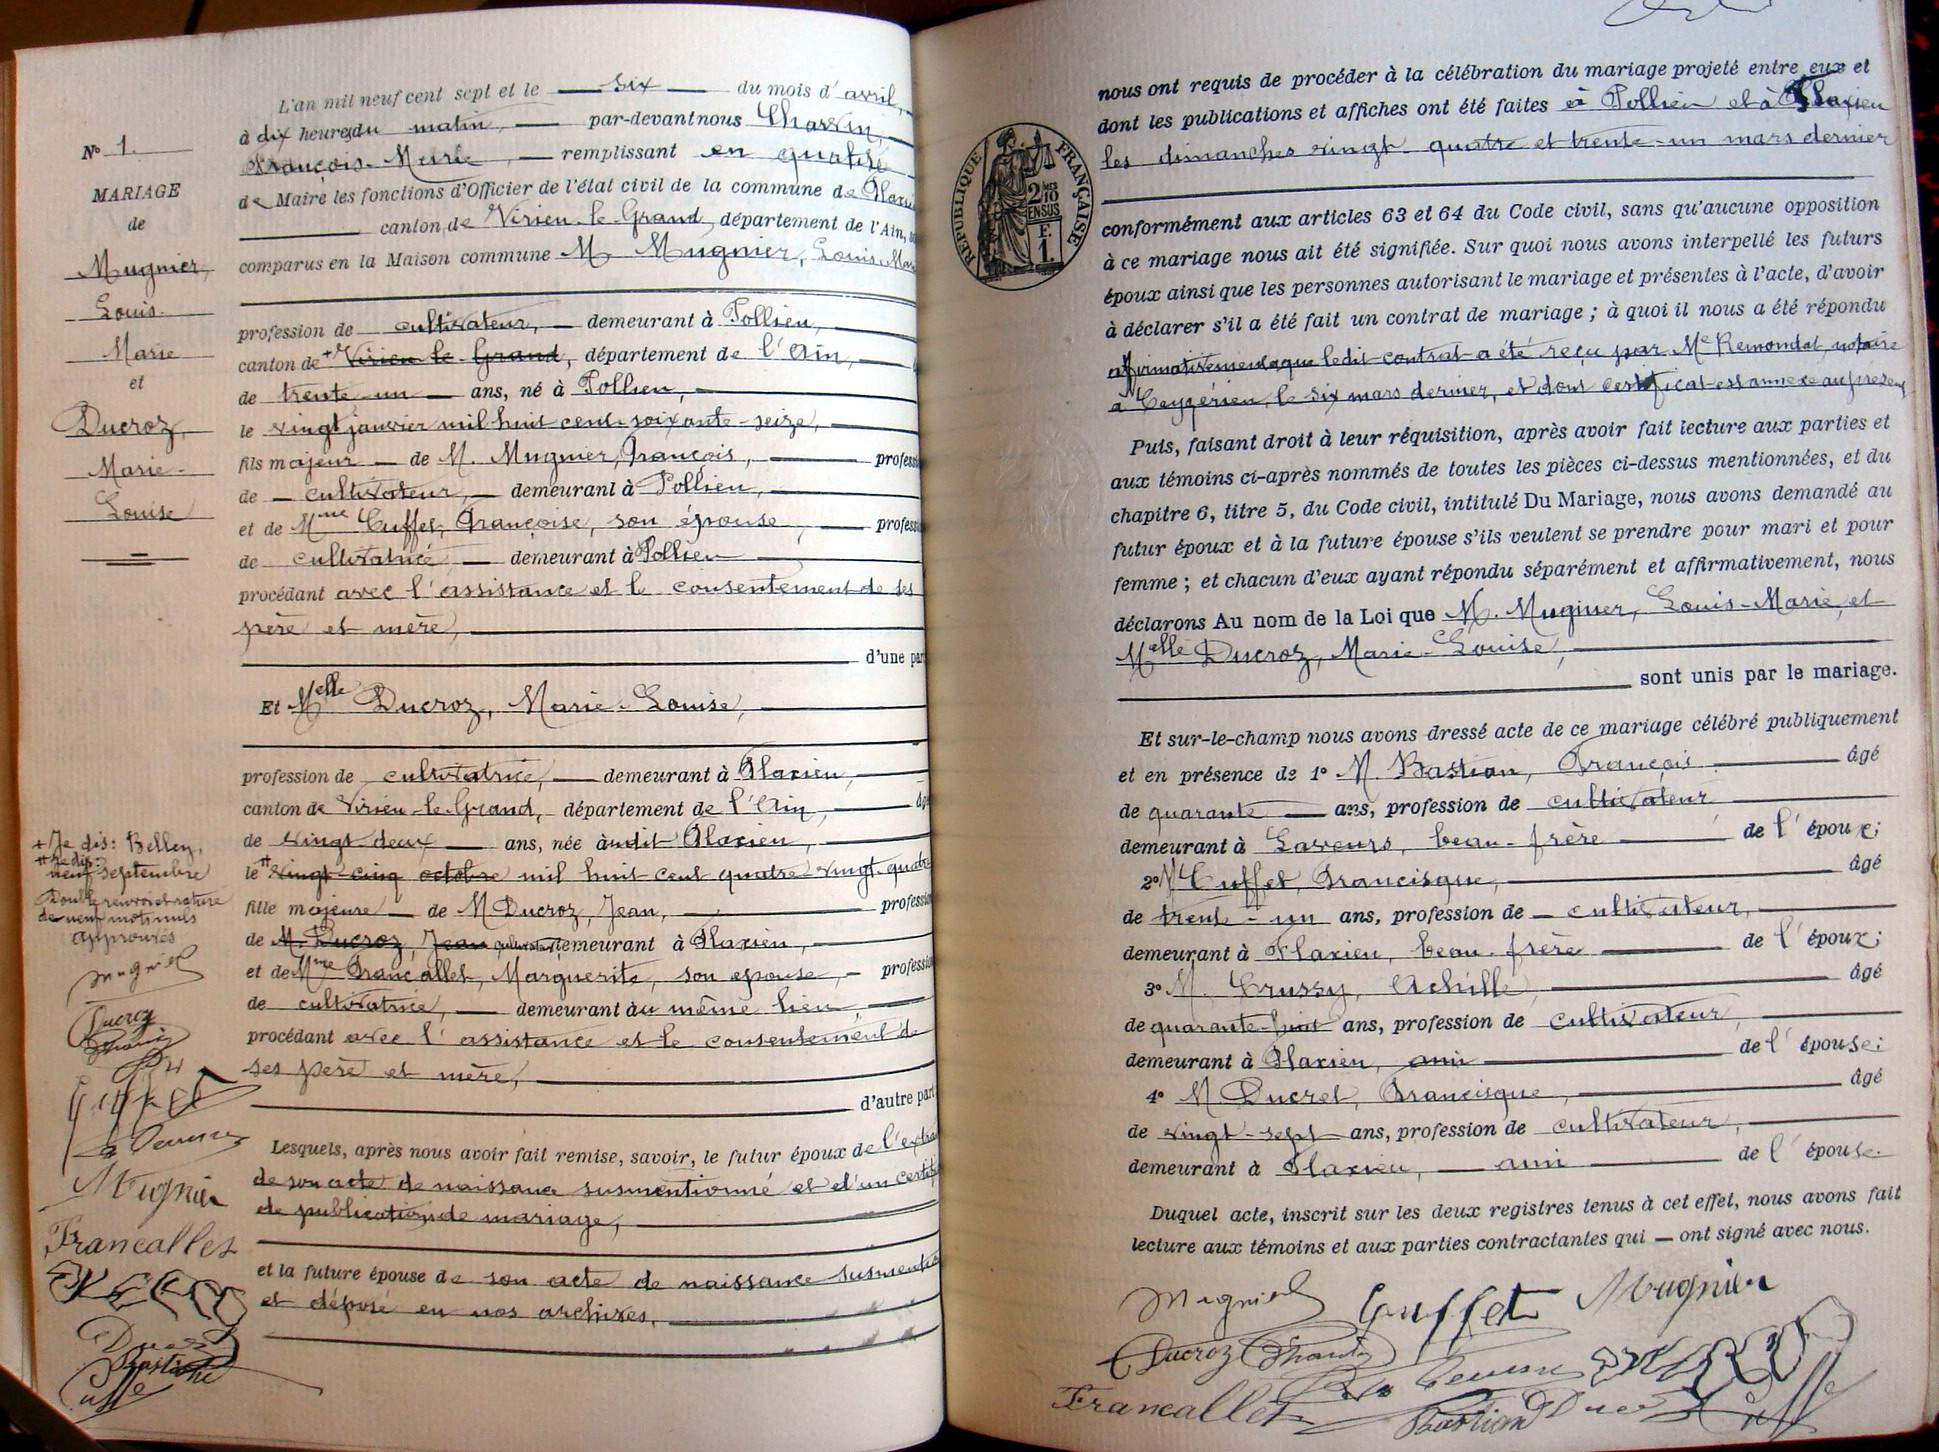 L'an mil neuf cent sept et le six du mois d'avril,
à dix heures du matin, par-devant nous Charvin,
François-Marie, remplissant en qualité
de Maire les fonctions d'Officier de l'état civil de la commune de Flaxieu
canton de Virieu-le-Grand, département de l'Ain,
comparus en la Maison commune M. Mugnier, Louis-Marie
profession de cultivateur, demeurant à Pollieu,
canton de + Virieu-le-Grand, département de l'Ain,
de trente-un ans, né à Pollieu,
le vingt janvier mil huit cent soixante-seize,
fils majeur de M. Mugnier, François, profess
de cultivateur, demeurant à Pollieu,
et de Mme Cuffet, Françoise, son épouse, profess
de cultivatrice, demeurant à Pollieu
procédant avec l'assistance et le consentement de ses
père et mère,
d'une par
Et Melle Ducroz, Marie-Louise,
profession de cultivatrice, demeurant à Flaxieu,
canton de Virieu-le-Grand, département de l'Ain, âgé
de vingt-deux ans, née à udit Flaxieu,
le # vingt-cinq octobre mil huit cent quatre-vingt-quatre
fille majeure de M. Ducroz, Jean, professio
de M. Ducroz, Jean cultivateur demeurant à Flaxieu,
et de Mme Francallet, Marguerite, son épouse, professio
de cultivatrice, demeurant au même lieu,
procédant avec l'assistance et le consentement de
ses père et mère,
d'autre part
Lesquels, après nous avoir fait remise, savoir, le futur époux de l'extrai
de son acte de naissance susmentionné et d'un certif
de publication de mariage,
et la future épouse de son acte de naissance susmentio
et déposé en nos archives.
No 1.
MARIAGE
de
Mugnier,
Louis
Marie
et
Ducroz,
Marie-
Louise
+ Je dis: Belley,
# Je dis:
neuf septembre
Double renvoi et rature
de neuf mots nuls
approuvés
Mugnier
Ducroz
Cuffet
Mugnier
Francallet
Bastian
Cuffet
RÉPUBLIQUE FRANÇAISE
2/10
EN SUS
F.
1.
nous ont requis de procéder à la célébration du mariage projeté entre eux et
dont les publications et affiches ont été faites à Pollieu et à Flaxieu
les dimanches vingt-quatre et trente-un mars dernier
conformément aux articles 63 et 64 du Code civil, sans qu'aucune opposition
à ce mariage nous ait été signifiée. Sur quoi nous avons interpellé les futurs
époux ainsi que les personnes autorisant le mariage et présentes à l'acte, d'avoir
à déclarer s'il a été fait un contrat de mariage ; à quoi il nous a été répondu
affirmativement et que ledit contrat a été reçu par Me Remondat, notaire
à Ceyzérieu, le six mars dernier, et dont certificat est annexé au présent
Puis, faisant droit à leur réquisition, après avoir fait lecture aux parties et
aux témoins ci-après nommés de toutes les pièces ci-dessus mentionnées, et du
chapitre 6, titre 5, du Code civil, intitulé Du Mariage, nous avons demandé au
futur époux et à la future épouse s'ils veulent se prendre pour mari et pour
femme ; et chacun d'eux ayant répondu séparément et affirmativement, nous
déclarons Au nom de la Loi que M. Mugnier, Louis-Marie, et
Melle Ducroz, Marie-Louise,
sont unis par le mariage.
Et sur-le-champ nous avons dressé acte de ce mariage célébré publiquement
et en présence de 1º M. Bastian, François âgé
de quarante ans, profession de cultivateur
demeurant à Lavours, beau-frère de l'époux;
2º M. Cuffet, Francisque, âgé
de trent-un ans, profession de cultivateur,
demeurant à Flaxieu, beau-frère de l'époux;
3º M. Crussy, Achille, âgé
de quarante-huit ans, profession de cultivateur,
demeurant à Flaxieu, ami de l'épouse;
4º M. Ducret, Francisque, âgé
de vingt-sept ans, profession de cultivateur,
demeurant à Flaxieu, ami de l'épouse.
Duquel acte, inscrit sur les deux registres tenus à cet effet, nous avons fait
lecture aux témoins et aux parties contractantes qui ont signé avec nous.
Mugnier Couffet Mugnier
Ducroz
Francallet Bastian Cuffet